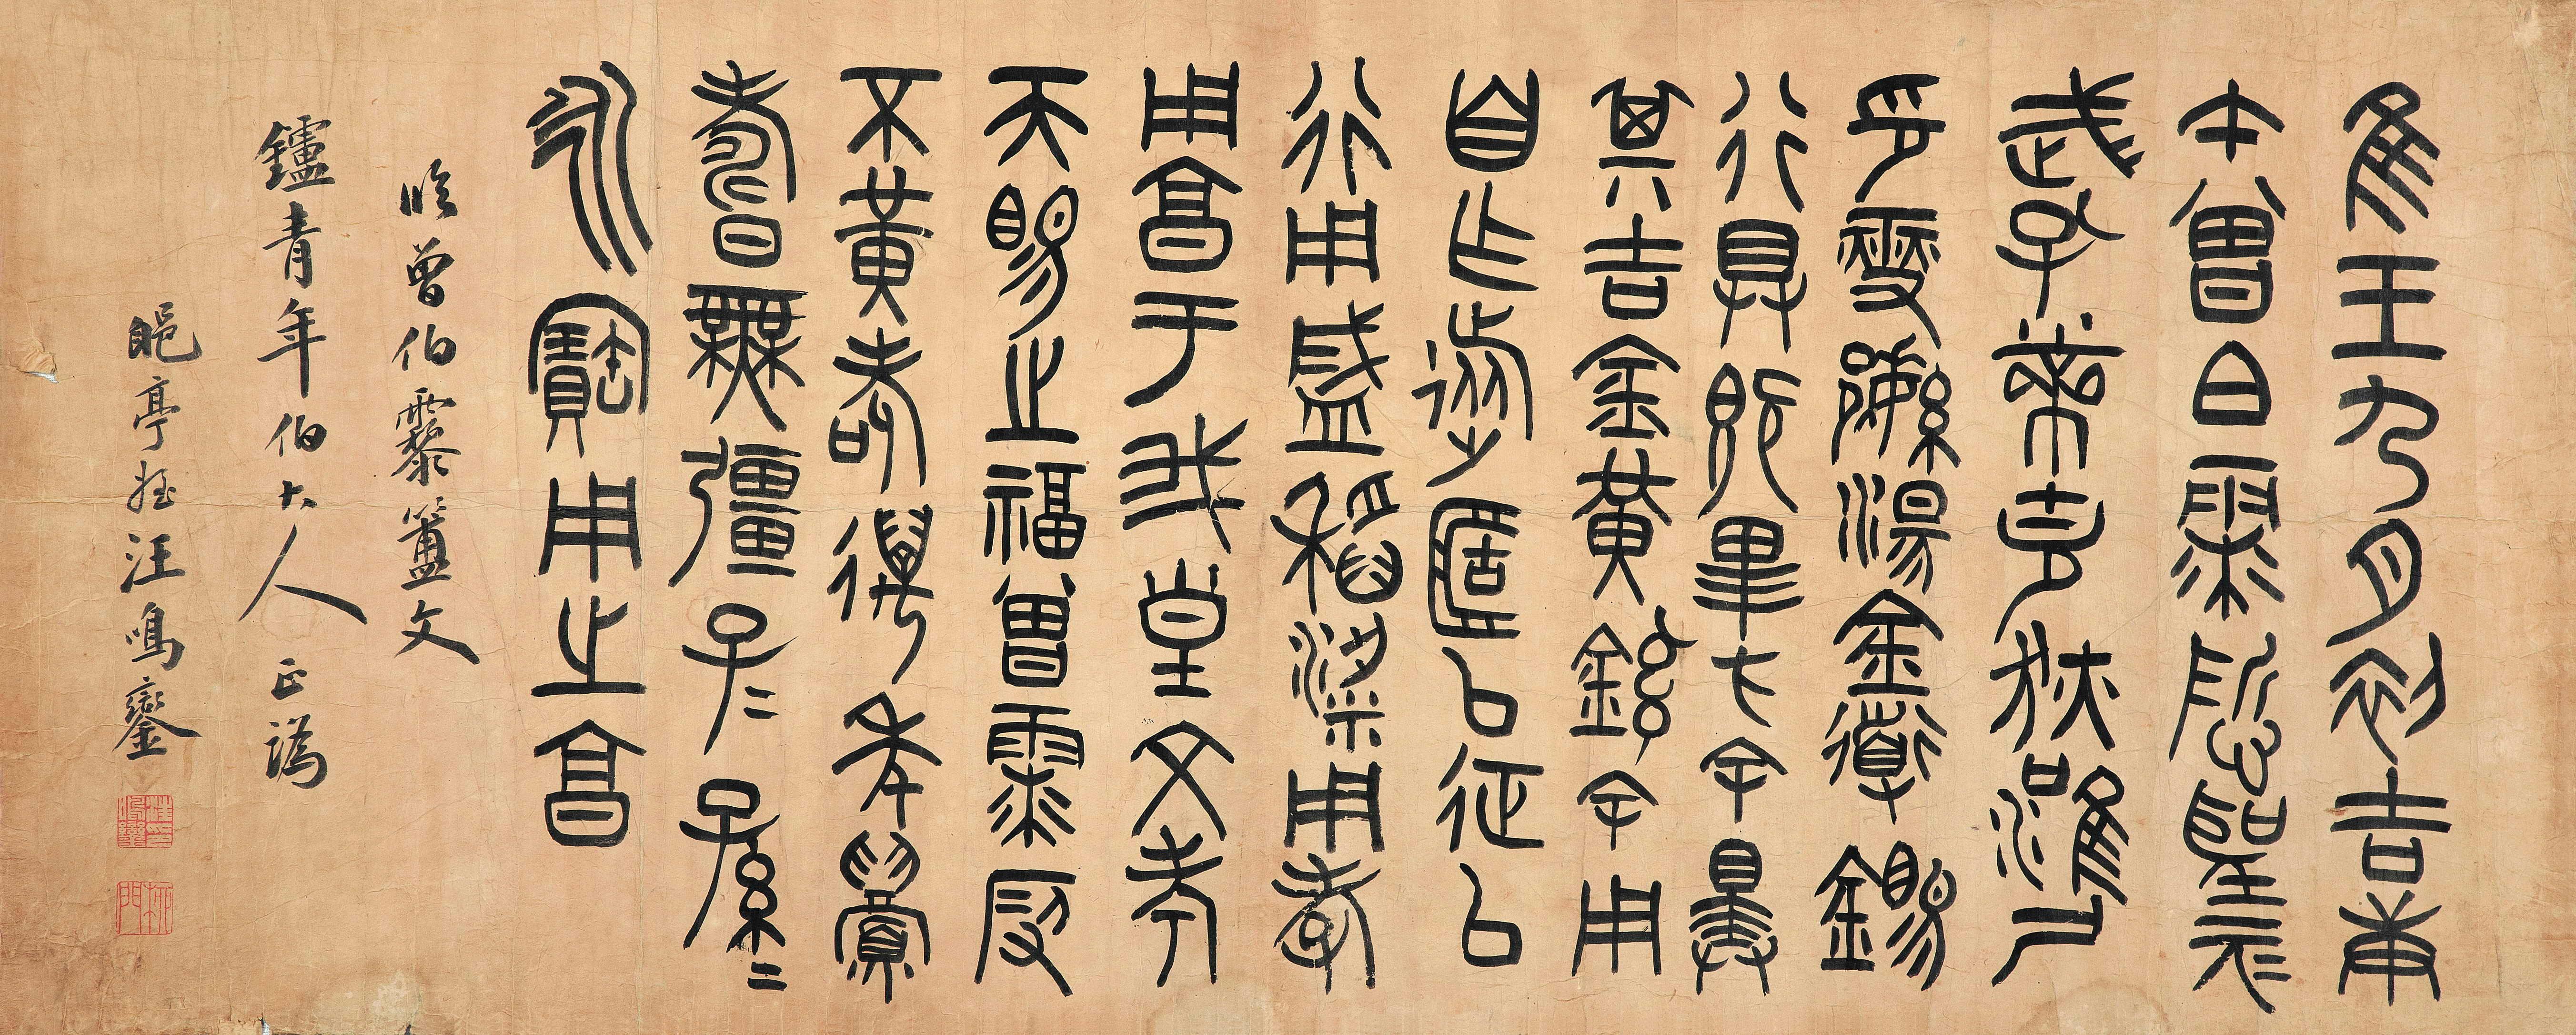 隹王九月初吉庚
午曾白霥悊聖元
武孔黹克狄淮尸
印燮繁湯金道錫
行具既卑方余擇
其吉金黃鑪余用
自乍旅簠以征以
行用盛稻粱用孝
用享于我皇文考
天賜之福曾霥叚
不黃耇邁年眉
壽無疆子=孫=
永寶用之享
臨曾伯霥簠文
鑪青年伯大人 正譌
郋亭姪汪鳴鑾
汪鳴鑾印
柳門